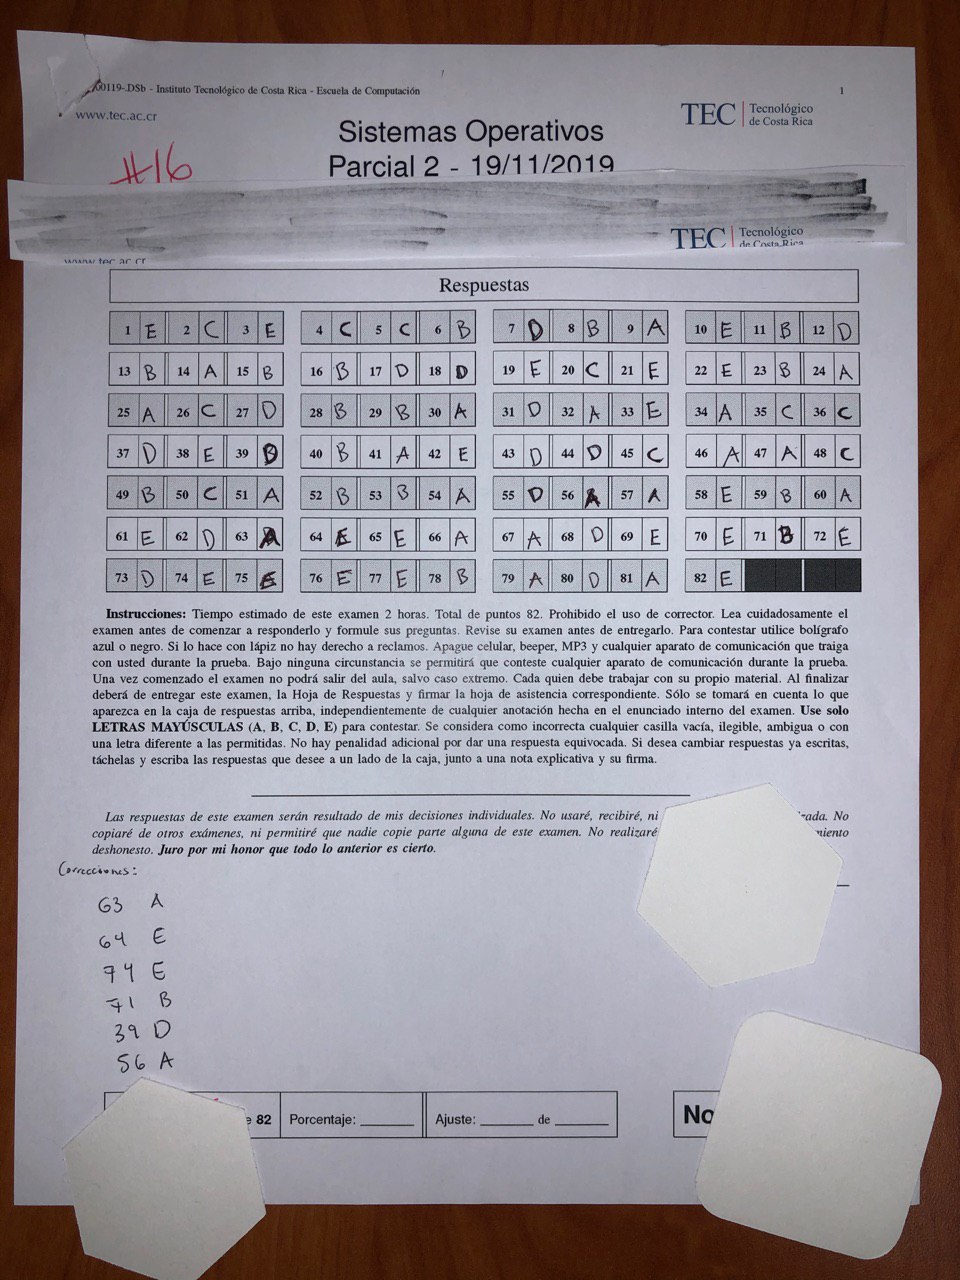 00119-.DSb - Instituto Tecnológico de Costa Rica - Escuela de Computación 1
www.tec.ac.cr
TEC | Tecnológico de Costa Rica
Sistemas Operativos
Parcial 2 - 19/11/2019
#16
TEC | Tecnológico de Costa Rica
www.tec.ac.cr
Respuestas
1 E 2 C 3 E 4 C 5 C 6 B 7 D 8 B 9 A 10 E 11 B 12 D
13 B 14 A 15 B 16 B 17 D 18 D 19 E 20 C 21 E 22 E 23 B 24 A
25 A 26 C 27 D 28 B 29 B 30 A 31 D 32 A 33 E 34 A 35 C 36 C
37 D 38 E 39 40 B 41 A 42 E 43 D 44 D 45 C 46 A 47 A 48 C
49 B 50 C 51 A 52 B 53 B 54 A 55 D 56 A 57 A 58 E 59 B 60 A
61 E 62 D 63 A 64 E 65 E 66 A 67 A 68 D 69 E 70 E 71 B 72 E
73 D 74 E 75 E 76 E 77 E 78 B 79 A 80 D 81 A 82 E
Instrucciones: Tiempo estimado de este examen 2 horas. Total de puntos 82. Prohibido el uso de corrector. Lea cuidadosamente el
examen antes de comenzar a responderlo y formule sus preguntas. Revise su examen antes de entregarlo. Para contestar utilice bolígrafo
azul o negro. Si lo hace con lápiz no hay derecho a reclamos. Apague celular, beeper, MP3 y cualquier aparato de comunicación que traiga
con usted durante la prueba. Bajo ninguna circunstancia se permitirá que conteste cualquier aparato de comunicación durante la prueba.
Una vez comenzado el examen no podrá salir del aula, salvo caso extremo. Cada quien debe trabajar con su propio material. Al finalizar
deberá de entregar este examen, la Hoja de Respuestas y firmar la hoja de asistencia correspondiente. Sólo se tomará en cuenta lo que
aparezca en la caja de respuestas arriba, independientemente de cualquier anotación hecha en el enunciado interno del examen. Use solo
LETRAS MAYÚSCULAS (A, B, C, D, E) para contestar. Se considera como incorrecta cualquier casilla vacía, ilegible, ambigua o con
una letra diferente a las permitidas. No hay penalidad adicional por dar una respuesta equivocada. Si desea cambiar respuestas ya escritas,
táchelas y escriba las respuestas que desee a un lado de la caja, junto a una nota explicativa y su firma.
Las respuestas de este examen serán resultado de mis decisiones individuales. No usaré, recibiré, ni No
copiaré de otros exámenes, ni permitiré que nadie copie parte alguna de este examen. No realizaré
deshonesto. Juro por mi honor que todo lo anterior es cierto.
Correcciones:
63 A
64 E
74 E
71 B
39 D
56 A
82 Porcentaje: Ajuste: de No